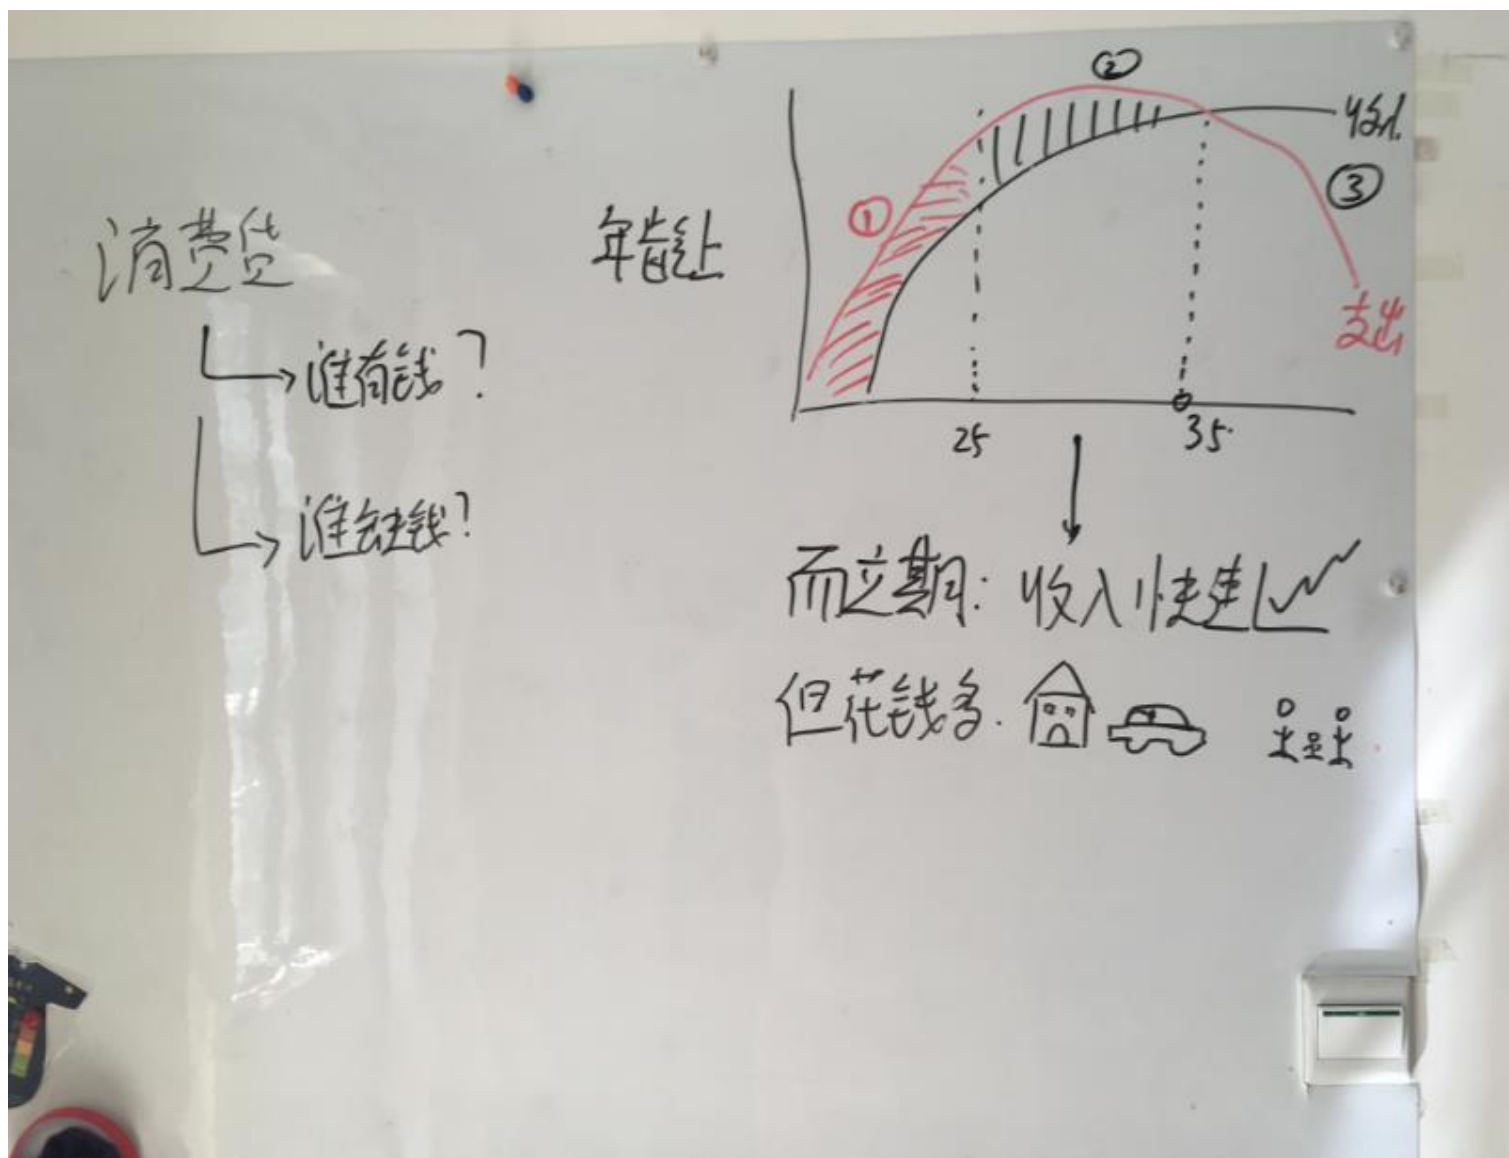 消费贷
谁有钱？
谁缺钱？
年龄上
①
②
③
收入
支出
25
35
而立期：收入快速
但花钱多.